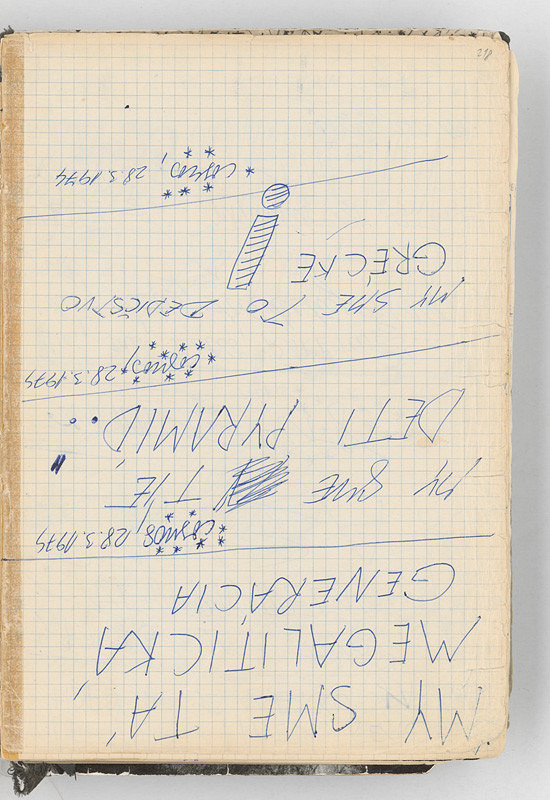 MY SME TÁ,
MEGALITICKÁ
GENERÁCIA
cosmos, 28.3.1979
MY SME TIE
DETI PYRAMÍD,
cosmos, 28.3.1979
MY SME TO DEDIČSTVO
GRÉCKE !
cosmos, 28.3.1979